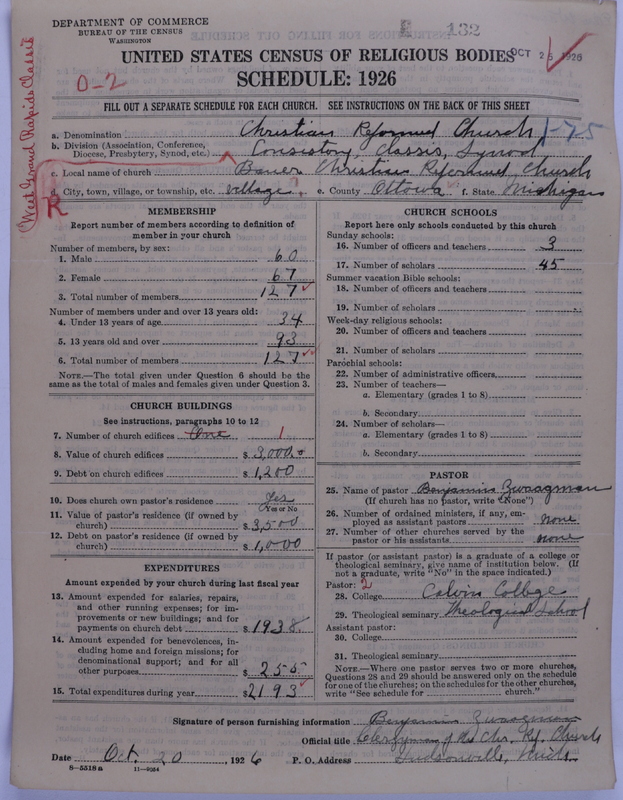 DEPARTMENT OF COMMERCE
BUREAU OF THE CENSUS
WASHINGTON
132
UNITED STATES CENSUS OF RELIGIOUS BODIES
OCT 25 1926
SCHEDULE: 1926
0-2
West Grand Rapids Classis
R
FILL OUT A SEPARATE SCHEDULE FOR EACH CHURCH. SEE INSTRUCTIONS ON THE BACK OF THIS SHEET
a. Denomination Christian Reformed Church 1-75
b. Division (Association, Conference, Diocese, Presbytery, Synod, etc.) Consistory, Classis, Synod
c. Local name of church Bauer Christian Reformed Church
d. City, town, village, or township, etc. village ? e. County Ottowa f. State Michigan
MEMBERSHIP
Report number of members according to definition of
member in your church
Number of members, by sex:
1. Male 60
2. Female 67
3. Total number of members 127
Number of members under and over 13 years old:
4. Under 13 years of age 34
5. 13 years old and over 93
6. Total number of members 127
NOTE.—The total given under Question 6 should be the
same as the total of males and females given under Question 3.
CHURCH BUILDINGS
See instructions, paragraphs 10 to 12
7. Number of church edifices One 1
8. Value of church edifices $ 3,000.0
9. Debt on church edifices $ 1,200
10. Does church own pastor's residence Yes
Yes or No
11. Value of pastor's residence (if owned by
church) $ 3,500
12. Debt on pastor's residence (if owned by
church) $ 1,000
EXPENDITURES
Amount expended by your church during last fiscal year
13. Amount expended for salaries, repairs,
and other running expenses; for im-
provements or new buildings; and for
payments on church debt $ 1938.
14. Amount expended for benevolences, in-
cluding home and foreign missions; for
denominational support; and for all
other purposes $ 255
15. Total expenditures during year $ 2193
CHURCH SCHOOLS
Report here only schools conducted by this church
Sunday schools:
16. Number of officers and teachers 3
17. Number of scholars 45
Summer vacation Bible schools:
18. Number of officers and teachers
19. Number of scholars
Week-day religious schools:
20. Number of officers and teachers
21. Number of scholars
Parochial schools:
22. Number of administrative officers
23. Number of teachers—
a. Elementary (grades 1 to 8)
b. Secondary
24. Number of scholars—
a. Elementary (grades 1 to 8)
b. Secondary
PASTOR
25. Name of pastor Benjamin Zwaagman
(If church has no pastor, write "None")
26. Number of ordained ministers, if any, em-
ployed as assistant pastors none
27. Number of other churches served by the
pastor or his assistants none
If pastor (or assistant pastor) is a graduate of a college or
theological seminary, give name of institution below. (If
not a graduate, write "No" in the space indicated.)
Pastor: 2
28. College Calvin College
29. Theological seminary Theological School
Assistant pastor:
30. College
31. Theological seminary
NOTE.—Where one pastor serves two or more churches,
Questions 28 and 29 should be answered only on the schedule
for one of the churches; on the schedules for the other churches,
write "See schedule for church."
Signature of person furnishing information Benjamin Zwaagman
Official title Clergyman of the Chr. Ref. Church
Date Oct. 20, 1926 P. O. Address Hudsonville, Mich.
8—5518a 11—9054